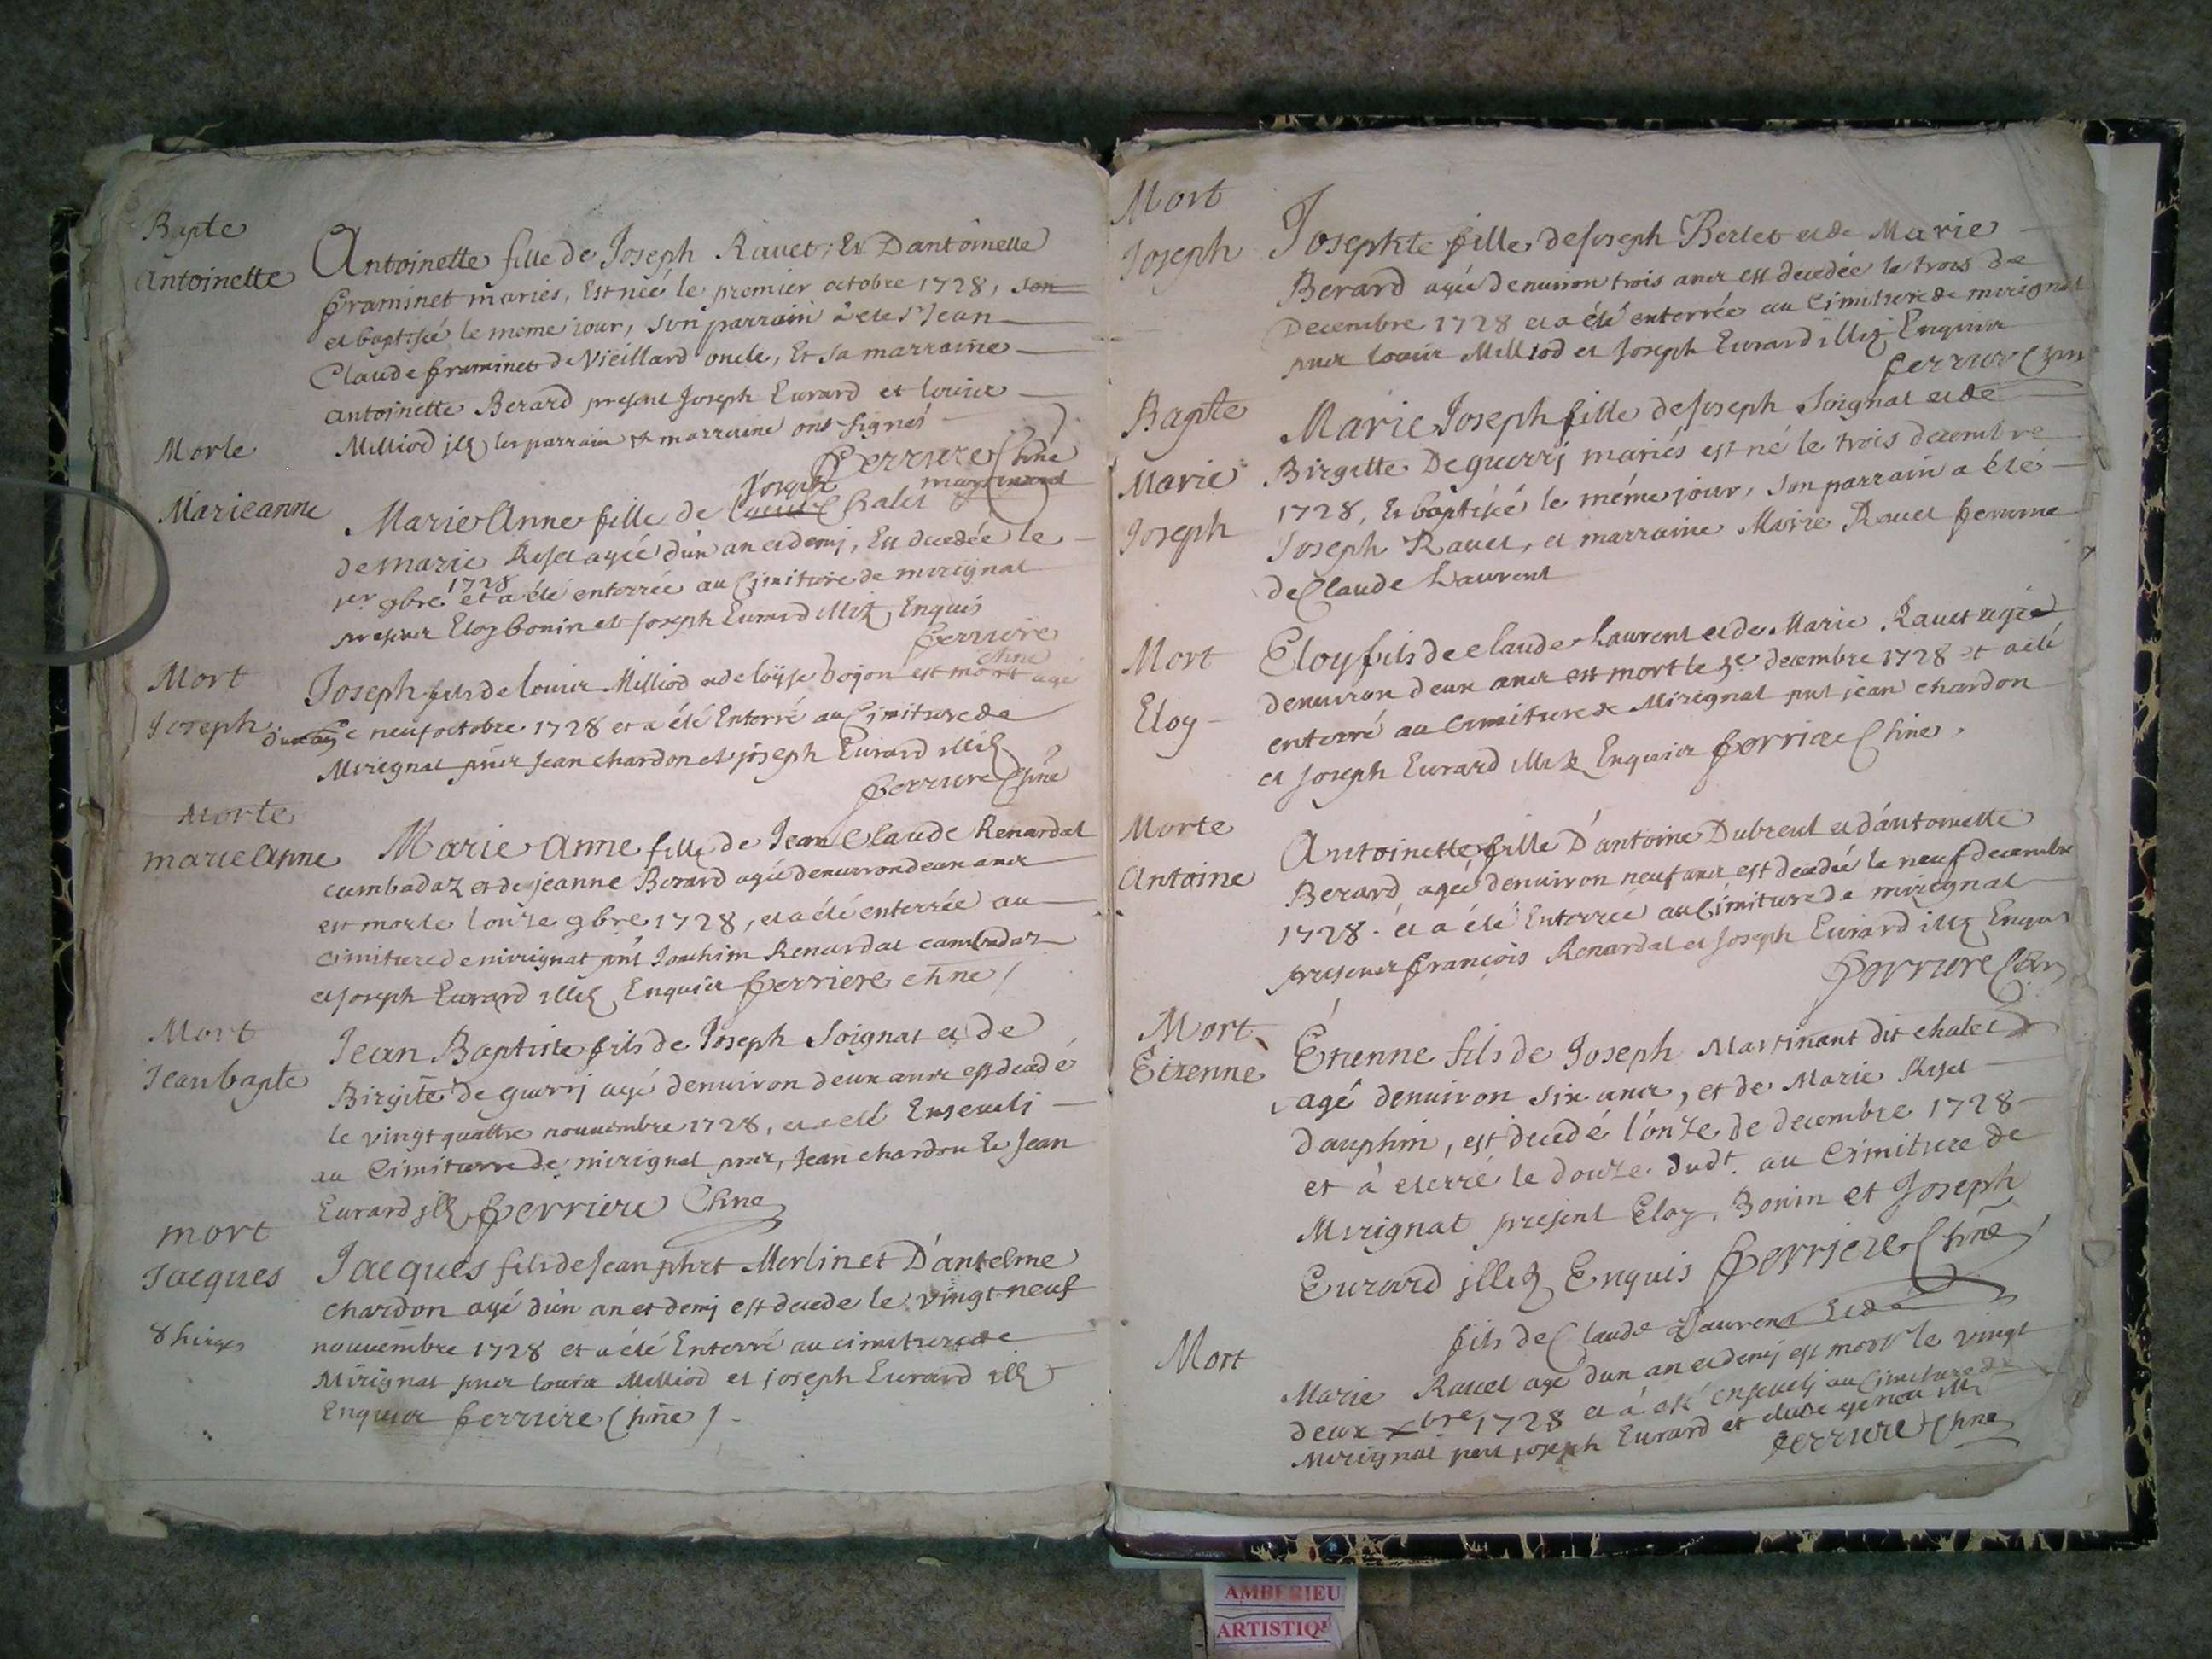 Bapte
Antoinette
Antoinette fille de Joseph Ravet, Et D'antoinette
framinet mariés, Est née le premier octobre 1728, son
et baptisé le meme jour, son parrain à eté Sr Jean
Claude framinet de Vieillard oncle, Et sa marraine
antoinette Berard present Joseph Eurard et louier
Milliod ill les parrain et marraine ont signés
ferriere Chne
Morte
Marieanne
Joseph martinand
Marie Anne fille de Chalet
de marie Ryset agée d'un an et demj, Est decedée le
1er 9bre 1728 et a été enterrée au Cimitiere de mirignat
Eloy bonin et Joseph Eurard Enquis
ferriere
chne
Mort
Joseph
Joseph fils de louier Milliod et de bojon est mort agé
d'un an le neuf octobre 1728 et a été Enterré au Cimitiere de
Mirignat jean chardon et joseph Eurard
ferriere Chne
Morte
marie Anne
Marie Anne fille de Jean Claude Renardat
cambadaz et de jeanne Berard agée denuiron deux ans
est morte l'onze 9bre 1728, et a été enterrée au
cimitiere de mirignat Joachim Renardat cambadaz
et Joseph Eurard Enquis ferriere chne
Mort
Jean bapte
Jean Baptiste fils de Joseph Soignat et de
Birgite de guerrj agé denuiron deux ans est decedé
le vingt quattre nouuembre 1728, et a eté Enseueli
au Cimitierre de mirignat Jean chardon Et Jean
Eurard ferriere Chne
mort
Jacques
Jacques fils de Jean Merlin et D'antelme
chardon agé d'un an et demj est decede le vingt neuf
nouuembre 1728 et a été Enterré au cimitiere de
Mirignat louier Milliod et joseph Eurard
Enquis ferriere Chne
Mort
Joseph
Josephte fille de Joseph Berlet et de Marie
Berard agée denuiron trois ans est decedée le trois de
Decembre 1728 et a été enterrée au Cimitiere de mirignat
louier Milliod et Joseph Eurard Enquis
ferriere
Bapte
Marie
Joseph
Marie Joseph fille de Joseph Soignat et de
Birgitte Deguerrj mariés est né le trois decembre
1728, Et baptisée le méme jour, son parrain a été
Joseph Rauet, et marraine Marie Rauet femme
de Claude Laurent
Mort
Eloy
Eloy fils de claude Laurent et de Marie Rauet agé
denuiron deux ans est mort le 5e decembre 1728 et a eté
enterré au Cimitiere de Mirignat jean chardon
et Joseph Eurard Enquis ferriere Chne
Morte
Antoine
Antoinette fille D'antoine Dubreul et d'antoinette
Berard, agée denuiron neuf ans est decedée le neuf decembre
1728. et a été Enterrée au Cimitiere de mirignat
françois Renardat et Joseph Eurard Enquis
ferriere
Mort
Etienne
Etienne fils de Joseph Martinant dit chalet
agé denuiron six ans, et de Marie Ryset
dauphin, est decedé l'onze de decembre 1728
et à eterré le douze dudt. au Cimitiere de
Mirignat present Eloy Bonin et Joseph
Eurard Enquis ferriere Chne
Mort
fils de Claude Laurent Et de
Marie Rauet agé d'un an et demj est mort le vingt
deux xbre 1728 et à esté enseuelj au Cimitiere de
Mirignat joseph Eurard et
ferriere Chne
AMBERIEU
ARTISTIQ